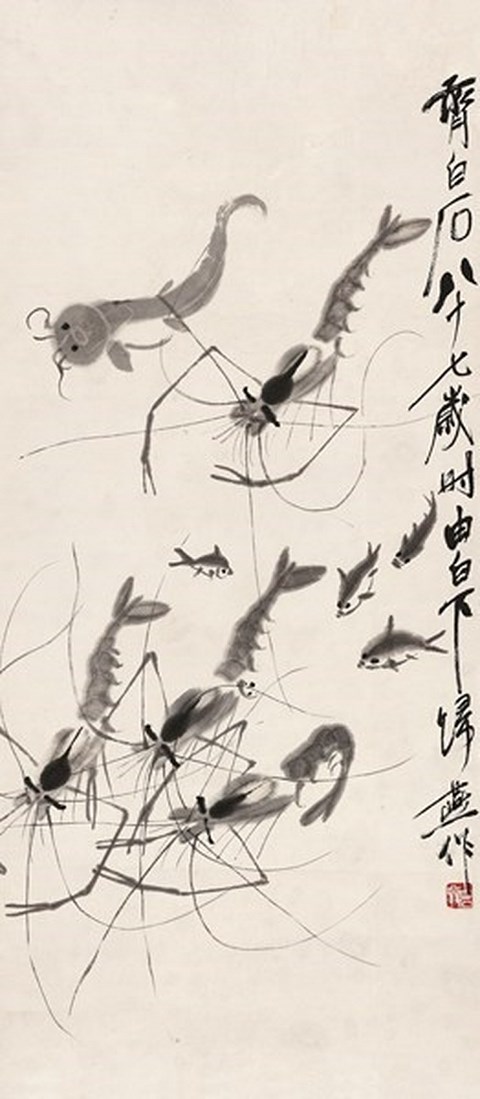 齊白石八十七歲时由白下歸燕作